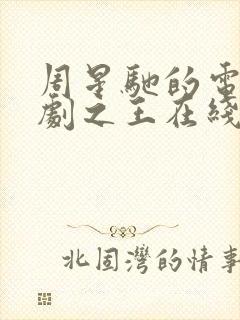 周星馳的電
劇之王在綫
北固灣的情事